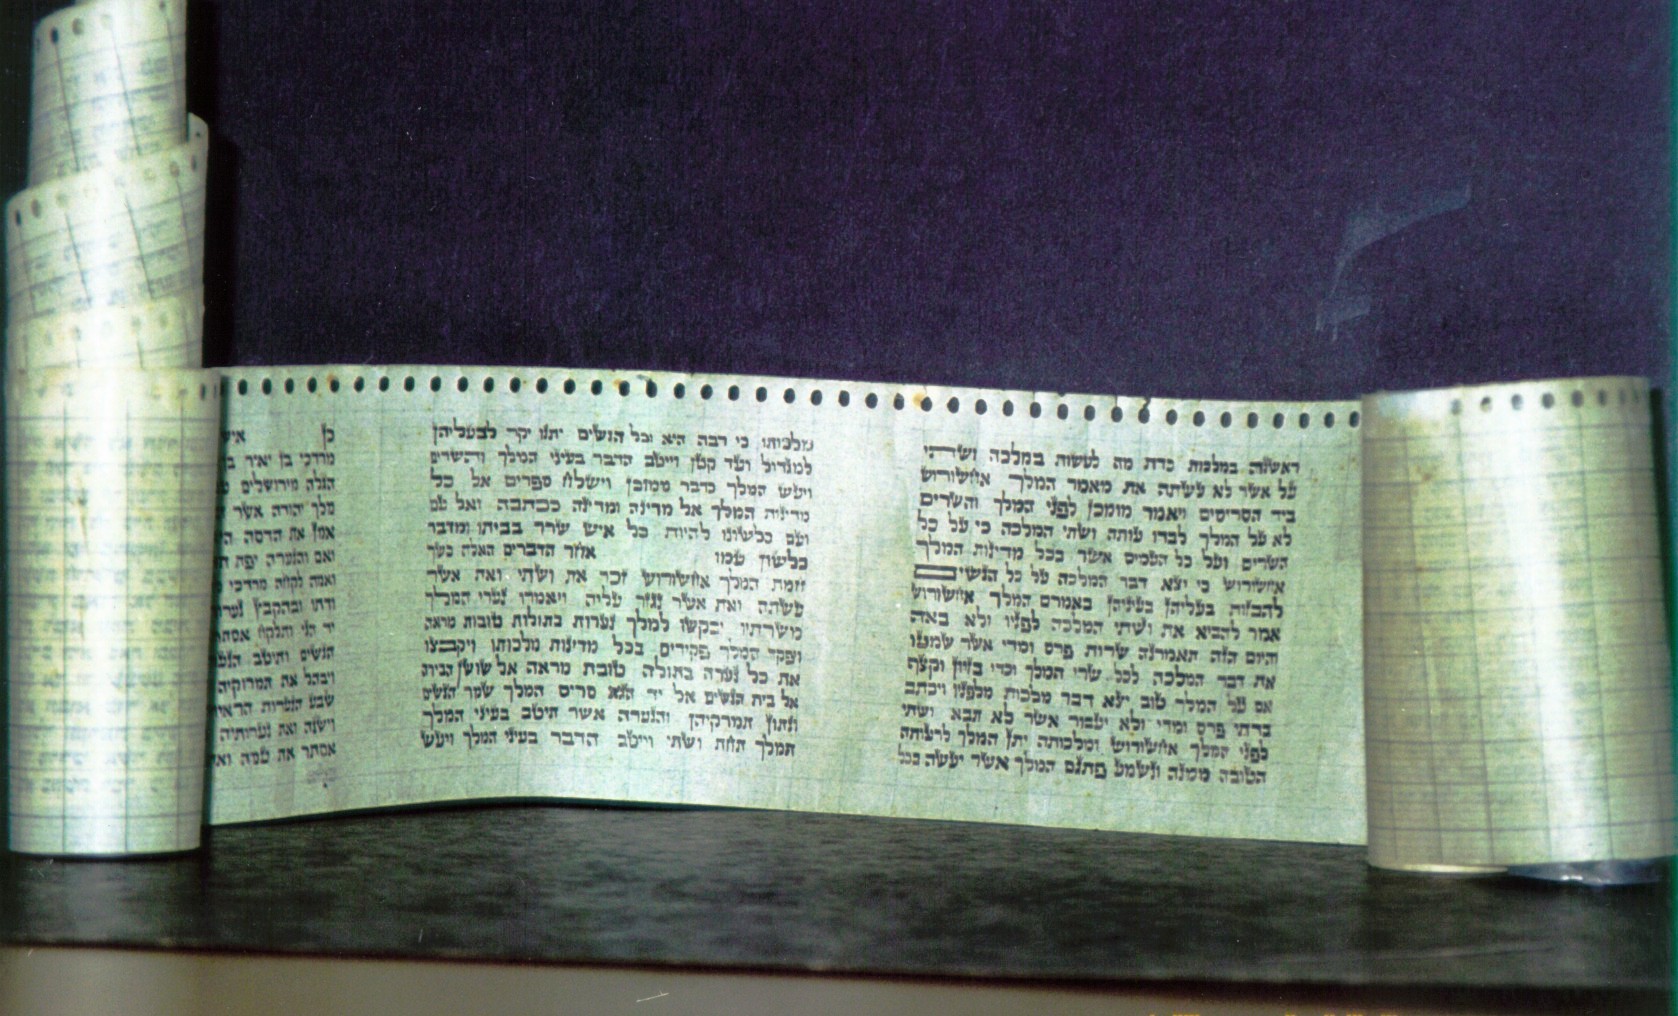 ראשונה במלכות כדת מה לעשות במלכה ושתי
על אשר לא עשתה את מאמר המלך אחשורוש
ביד הסריסים ויאמר מומכן לפני המלך והשרים
לא על המלך לבדו עותה ושתי המלכה כי על כל
השרים ועל כל העמים אשר בכל מדינות המלך
אחשורוש כי יצא דבר המלכה על כל הנשים
להבזות בעליהן בעיניהן באמרם המלך אחשורוש
אמר להביא את ושתי המלכה לפניו ולא באה
והיום הזה תאמרנה שרות פרס ומדי אשר שמעו
את דבר המלכה לכל שרי המלך וכדי בזיון וקצף
אם על המלך טוב יצא דבר מלכות מלפניו ויכתב
בדתי פרס ומדי ולא יעבור אשר לא תבא ושתי
לפני המלך אחשורוש ומלכותה יתן המלך לרעותה
הטובה ממנה ונשמע פתגם המלך אשר יעשה בכל
מלכותו כי רבה היא וכל הנשים יתנו יקר לבעליהן
למגדול ועד קטן וייטב הדבר בעיני המלך והשרים
ויעש המלך כדבר ממוכן וישלח ספרים אל כל
מדינות המלך אל מדינה ומדינה ככתבה ואל עם
ועם כלשונו להיות כל איש שרר בביתו ומדבר
כלשון עמו אחר הדברים האלה כשך
חמת המלך אחשורוש זכר את ושתי ואת אשר
עשתה ואת אשר נגזר עליה ויאמרו נערי המלך
משרתיו יבקשו למלך נערות בתולות טובות מראה
ויפקד המלך פקידים בכל מדינות מלכותו ויקבצו
את כל נערה בתולה טובת מראה אל שושן הבירה
אל בית הנשים אל יד הגא סריס המלך שמר הנשים
ונתון תמרקיהן והנערה אשר תיטב בעיני המלך
תמלך תחת ושתי וייטב הדבר בעיני המלך ויעש
כן איש
מרדכי בן יאיר
הגלה מירושלים
מלך יהודה אשר
אמן את הדסה
ואם והנערה יפת
ואמה לקחה מרדכי
ודתו ובהקבץ
יד הגי ותלקח
הנשים ותיטב
ויבהל את תמרוקיה
שבע הנערות
וישנה ואת נערותיה
אסתר את עמה